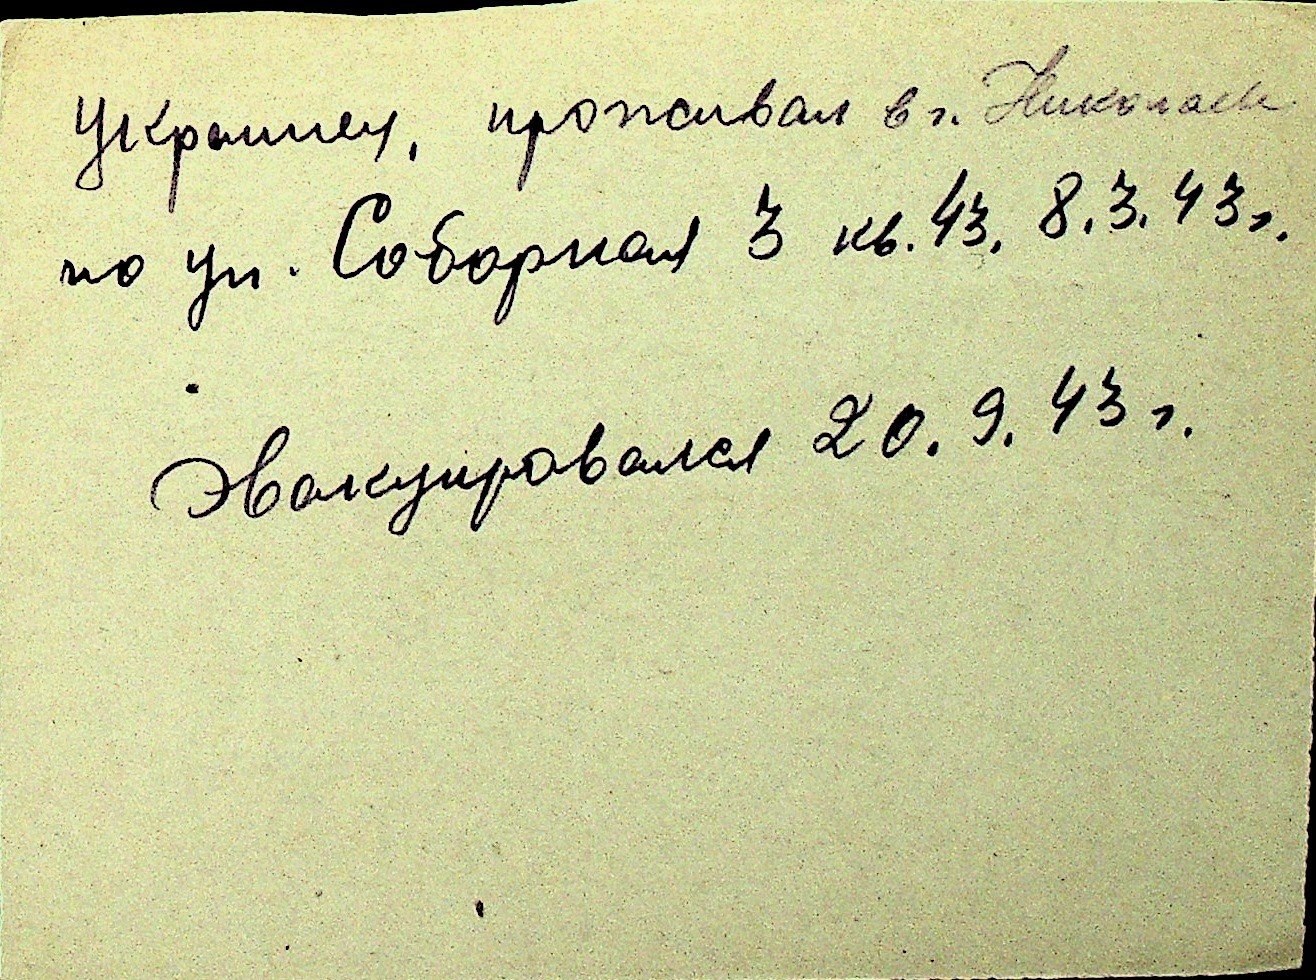 Украинец, проживал в г. Николаев
по ул. Соборная 3 кв. 43. 8.3.43 г.
Эвакуировался 20.9.43 г.